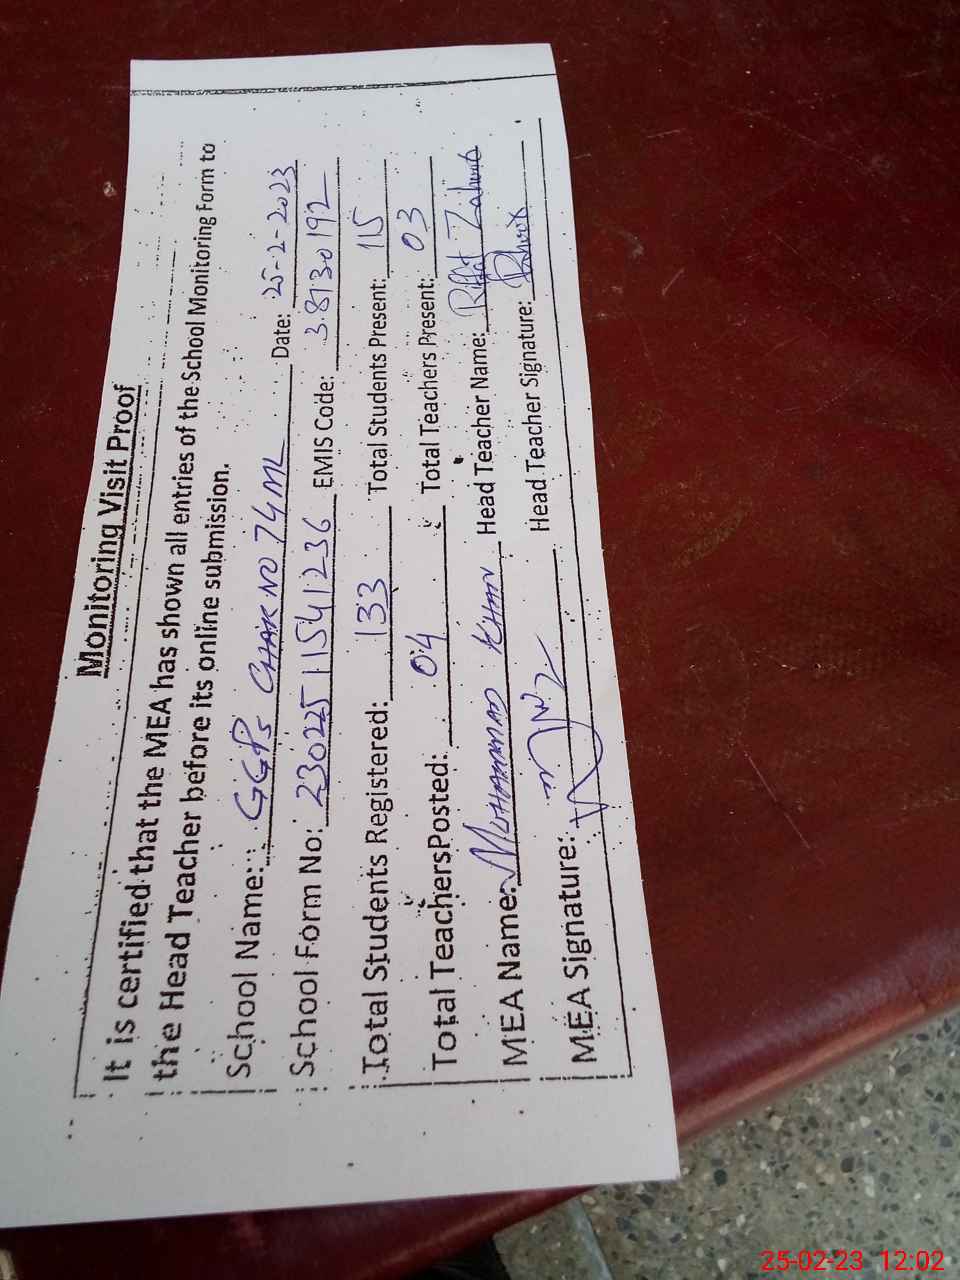 Monitoring Visit Proof
It is certified that the MEA has shown all entries of the School Monitoring Form to
the Head Teacher before its online submission.
School Name: GGPS CHAK NO 74 ML Date: 25-2-2023
School Form No: 23022511541236 EMIS Code: 38130192
Total Students Registered: 133 Total Students Present: 115
Total TeachersPosted: 04 Total Teachers Present: 03
MEA Name: MUHAMMAD KHAN Head Teacher Name: Riffat Zahoor
MEA Signature: Head Teacher Signature:
25-02-23 12:02